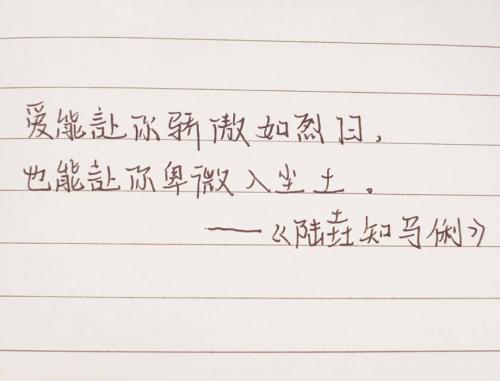 爱能让你骄傲如烈日，
也能让你卑微入尘土。
——《陆垚知马俐》